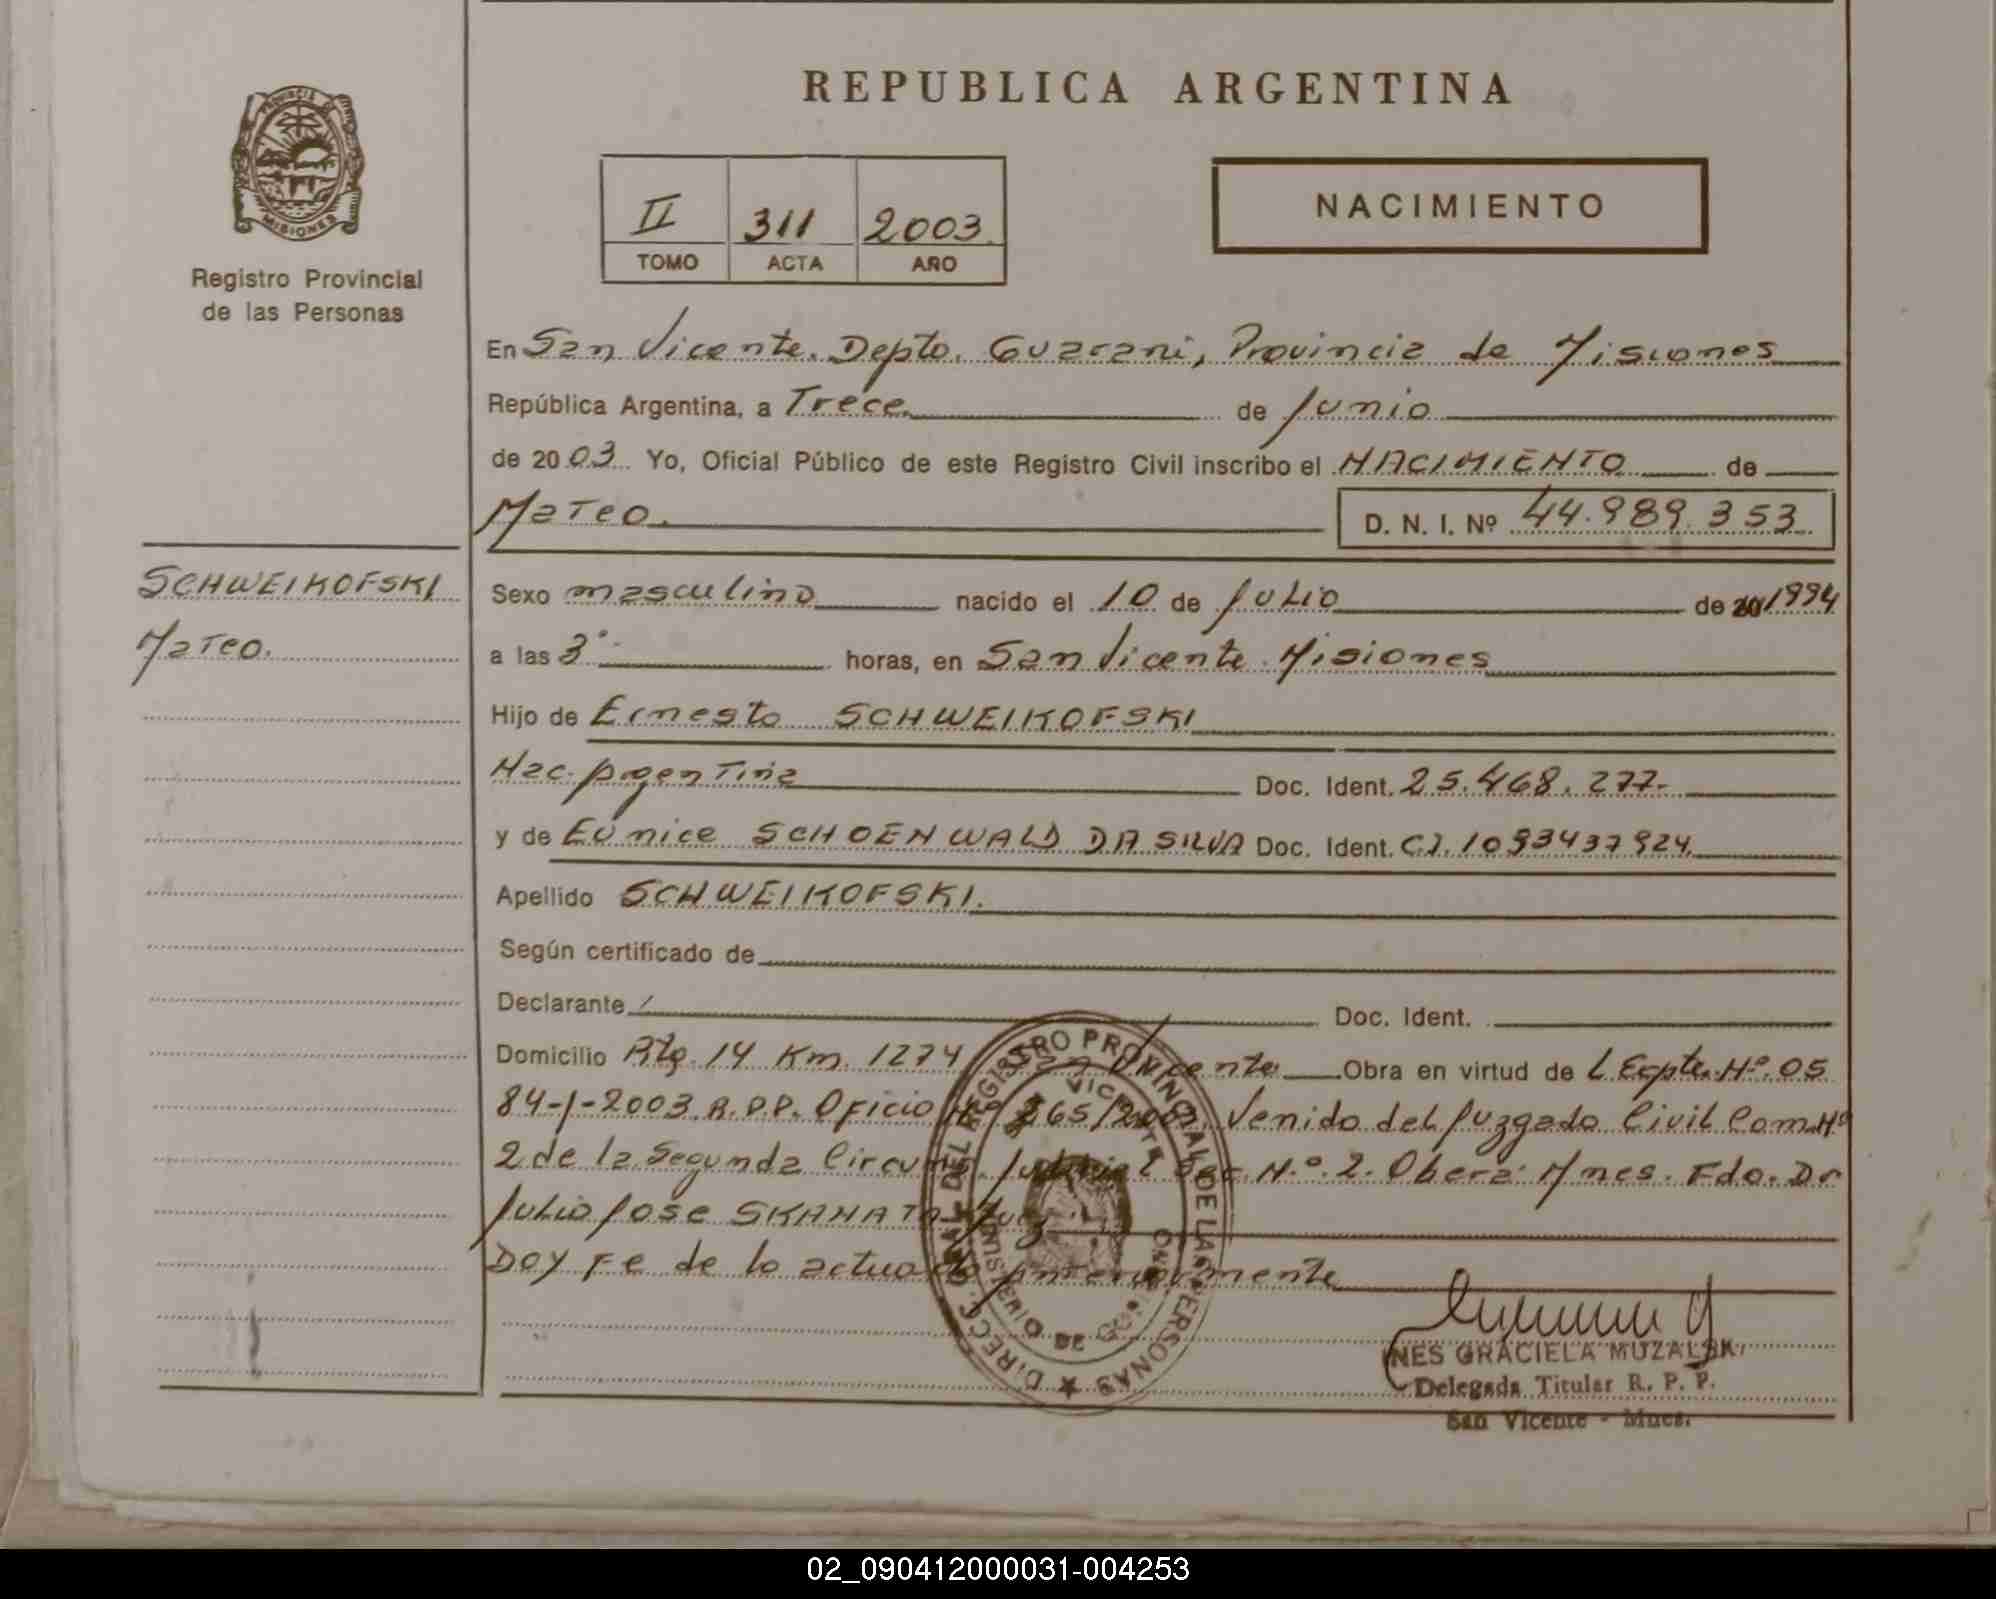 REPUBLICA ARGENTINA
PROVINCIA DE
MISIONES
Registro Provincial
de las Personas
II 311 2003
TOMO ACTA AÑO
NACIMIENTO
En San Vicente. Depto. Guarani, Provincia de Misiones
República Argentina, a Trece de Junio
de 2003 Yo, Oficial Público de este Registro Civil inscribo el NACIMIENTO de
Mateo. D. N. I. Nº 44.989.353
SCHWEIKOFSKI
Mateo.
Sexo masculino nacido el 10 de Julio de 20 1994
a las 3 horas, en San Vicente Misiones
Hijo de Ernesto SCHWEIKOFSKI
Nac. Argentina Doc. Ident. 25.468.277-
y de Eunice SCHOENWALD DA SILVA Doc. Ident. CI. 1093437924
Apellido SCHWEIKOFSKI.
Según certificado de
Declarante / Doc. Ident.
Domicilio Rta. 14 Km. 1274 San Vicente Obra en virtud de L Expte. Nº. 05
84-J-2003 R.P.P. Oficio Venido del Juzgado Civil Com. Nº
2 de la Segunda Circuns. Judicial Sec. Nº. 2. Obera Mnes. Fdo. Dr
Julio Jose Juez
Doy Fe de lo actuado Anteriormente
DIRECC. GRAL. DEL REGISTRO PROVINCIAL DE LAS PERSONAS
MINISTERIO DE GOBIERNO
SAN VICENTE
INES GRACIELA
Delegada Titular R. P. P.
San Vicente - Mnes.
02_090412000031-004253